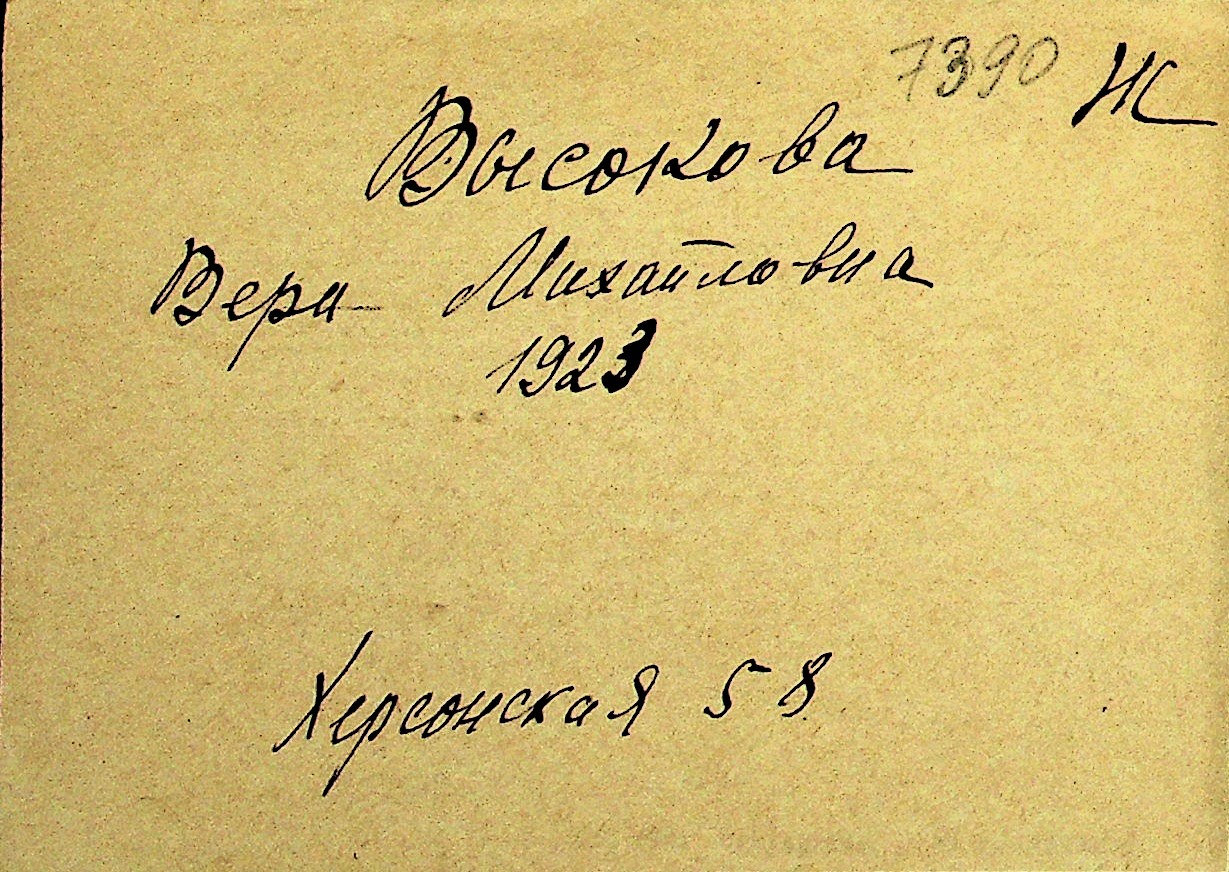 7390 Ж
Высокова
Вера Михайловна
1923
Херсонская 58